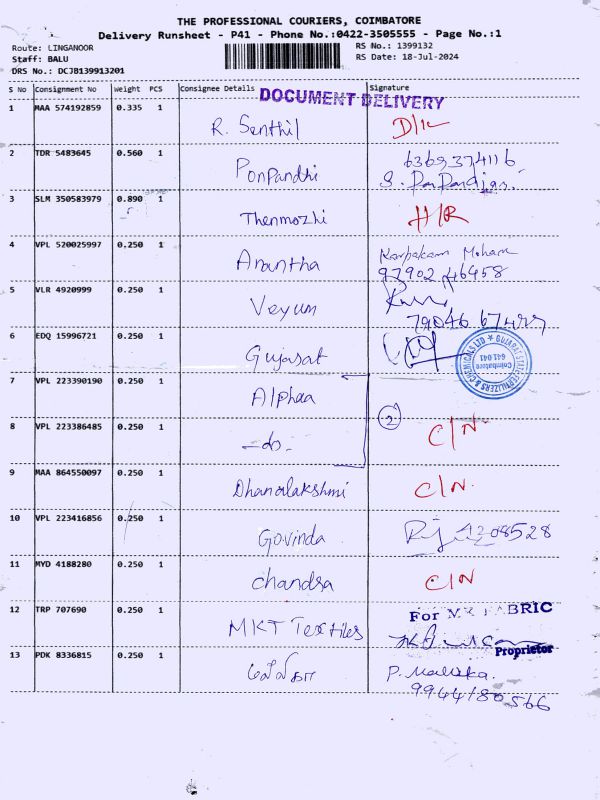 THE PROFESSIONAL COURIERS, COIMBATORE
Delivery Runsheet - P41 - Phone No.:0422-3505555 - Page No.:1
Route: LINGANOOR
RS No.: 1399132
Staff: BALU
RS Date: 18-Jul-2024
DRS No.: DCJB139913201
S No Consignment No Weight PCS Consignee Details Signature
DOCUMENT DELIVERY
1 MAA 574192859 0.335 1
R. Senthil
2 TDR 5483645 0.560 1
PonPandhi 6369374116
3 SLM 350583979 0.890 1
Thenmozhi
4 VPL 520025997 0.250 1
Anantha Karpakam Mohan
97902 46458
5 VLR 4920999 0.250 1
Veyum
6 EDQ 15996721 0.250 1
Gujasat
GUJARAT STATE FERTILIZERS & CHEMICALS LTD
Coimbatore
641 041
7 VPL 223390190 0.250 1
Alphaa
2
8 VPL 223386485 0.250 1
-do- C/N.
9 MAA 864550097 0.250 1
Dhanalakshmi C/N.
10 VPL 223416856 0.250 1
Govinda
11 MYD 4188280 0.250 1
Chandsa C/N
12 TRP 707690 0.250 1
For FABRIC
MKT Textiles
Proprietor
13 PDK 8336815 0.250 1
P. Mallika.
9944180566